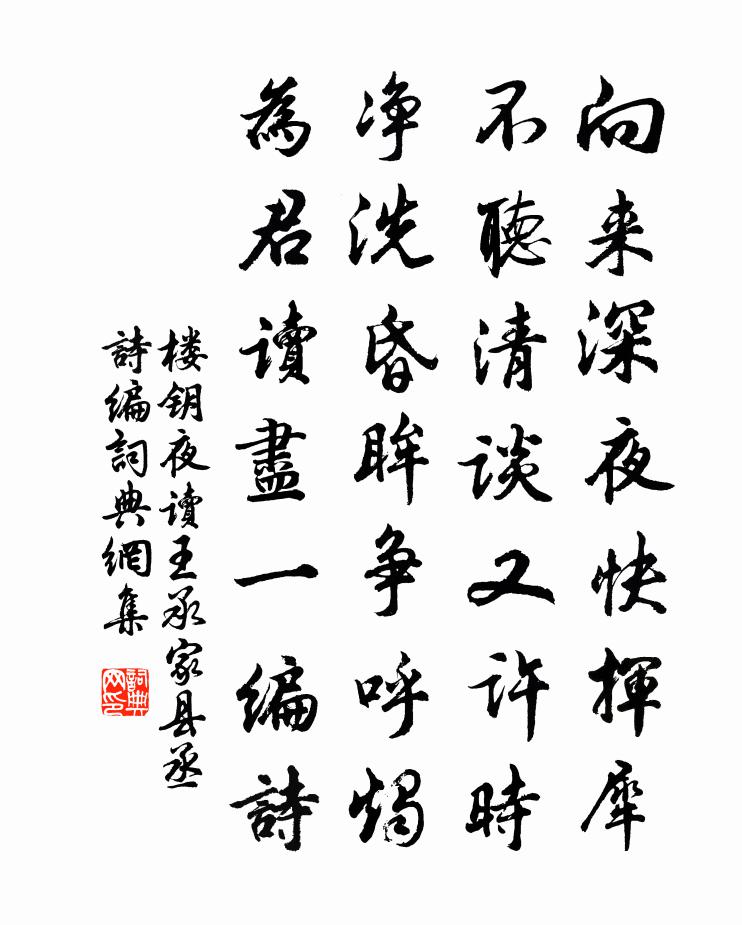 向来深夜快揮犀
不聽清談又許時
净洗昏眸争呼燭
為君讀盡一編詩
楼钥夜读王承家县丞
詩编詞典網集
詞典网印